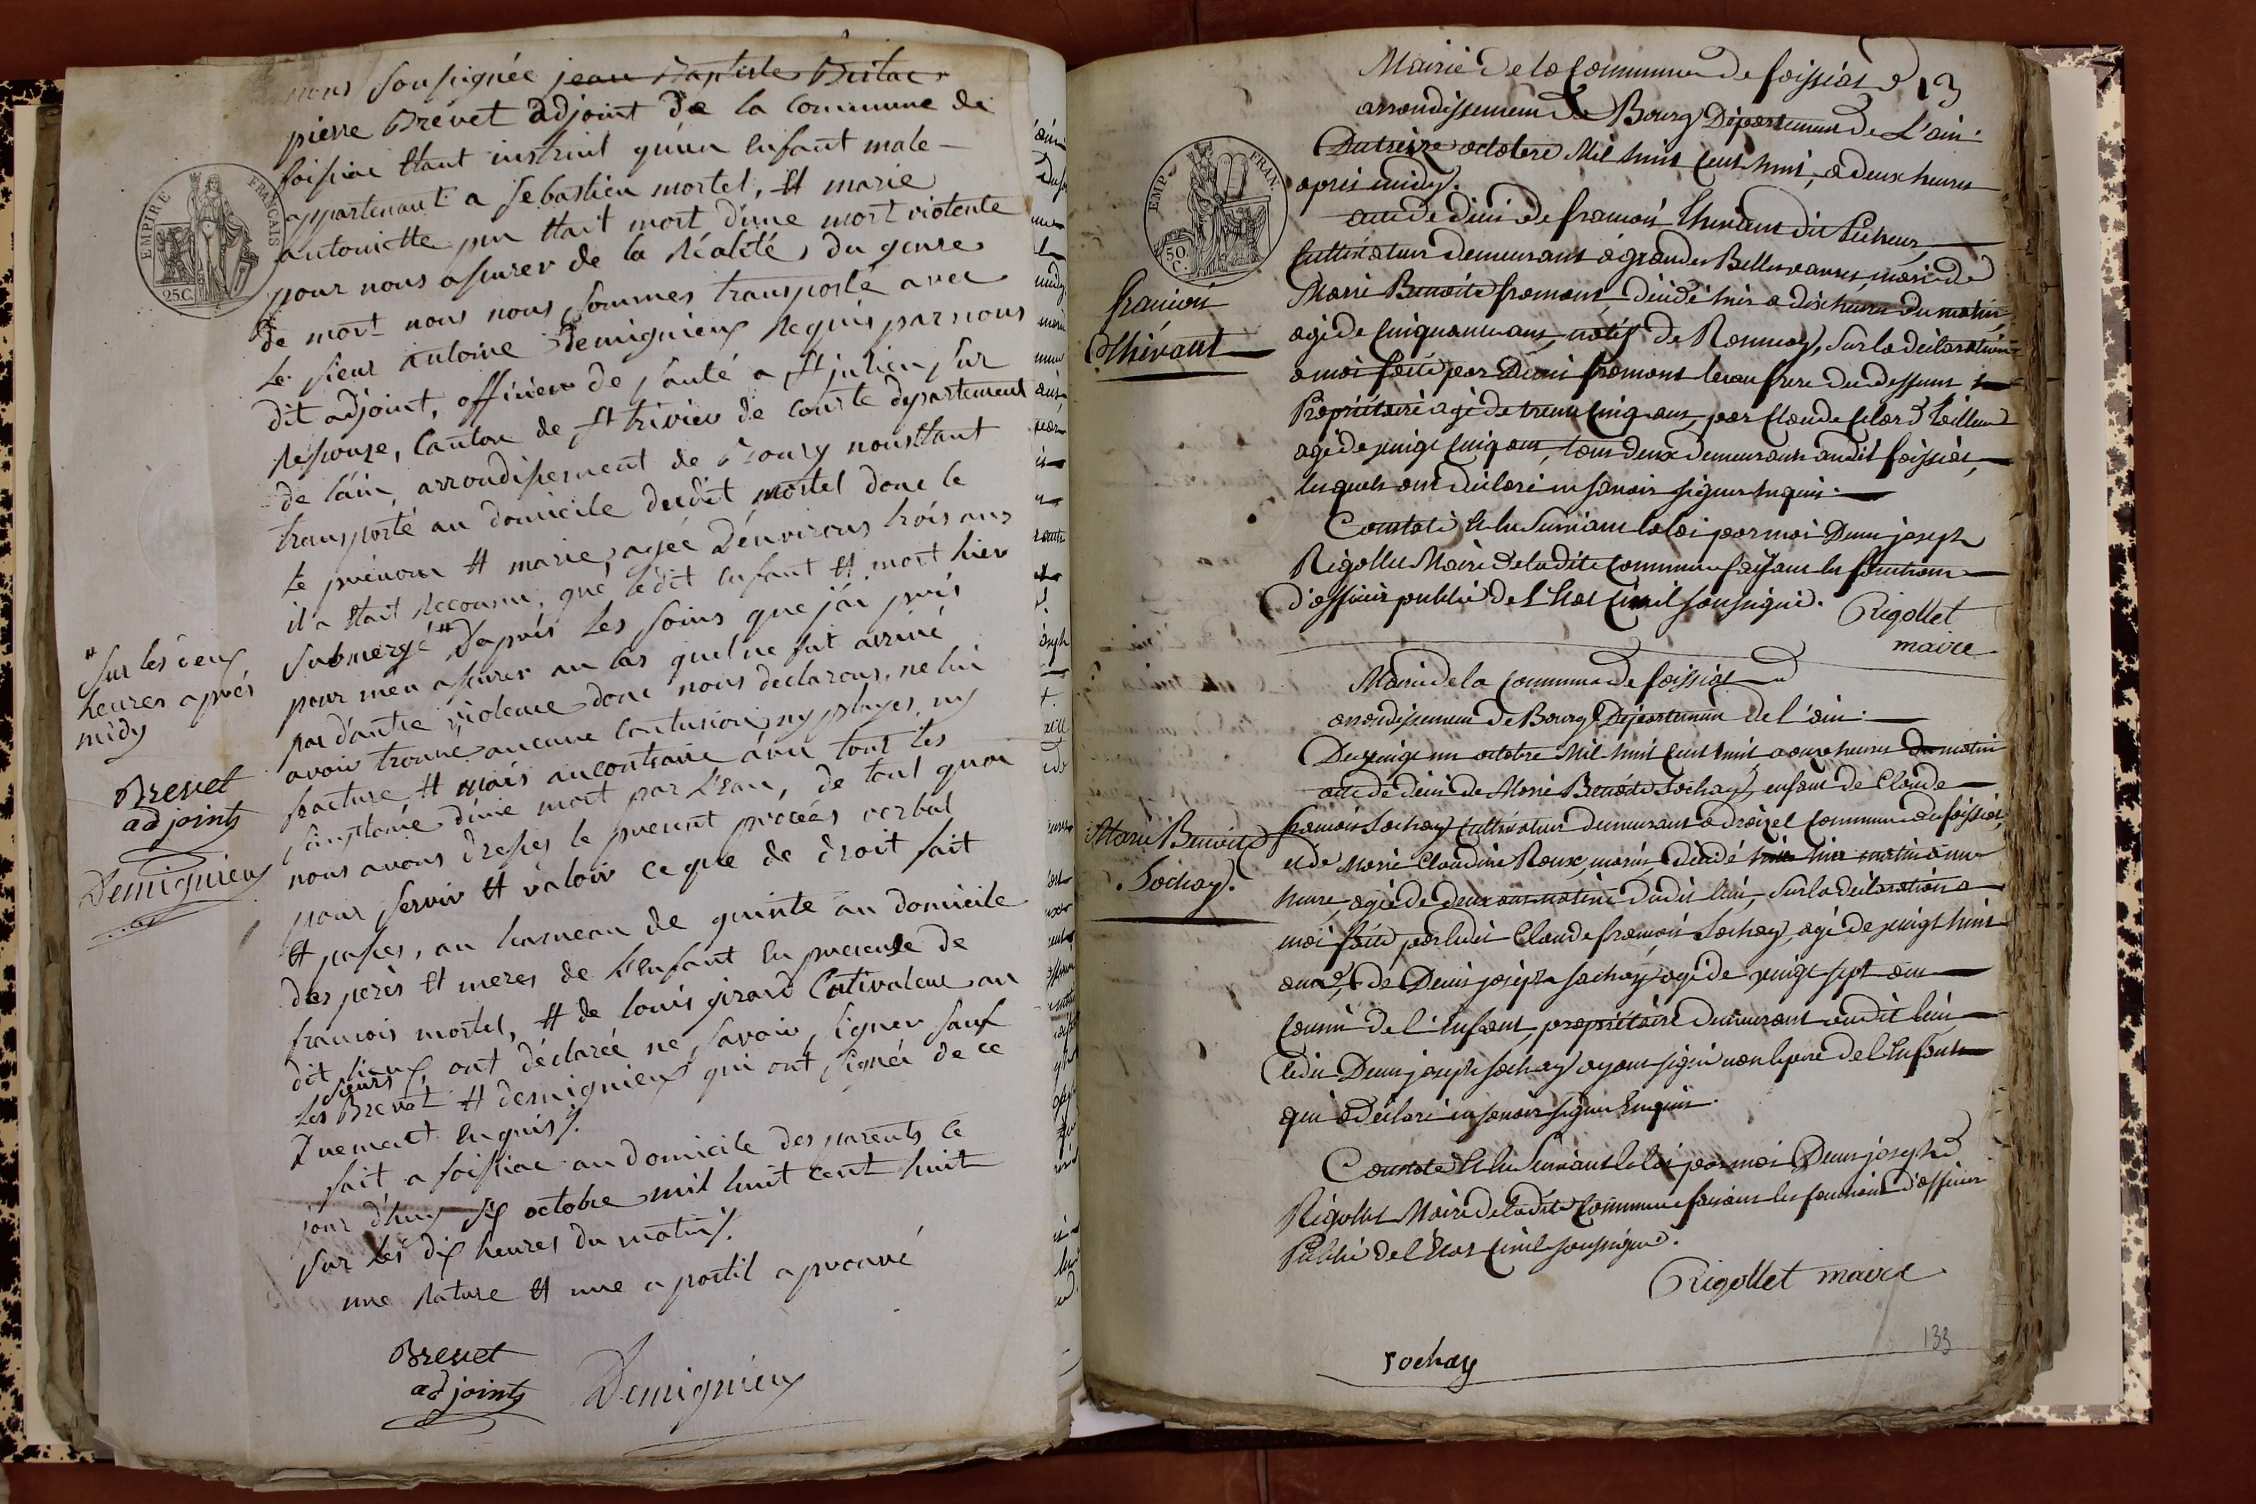 nous soussignée jean Baptiste
pierre Brevet adjoint de la commune de
foissiac étant instruit qu'un enfant male
appartenant a sebastien mortel, et marie
antoinette était mort d'une mort violente
pour nous assurer de la réalité, du genre
de mort nous nous sommes transporté avec
le sieur antoine demignieux requis par nous
dit adjoint, officier de santé a st julien sur
ressouze, canton de st trivier de courte departement
de l'ain, arrondissement de Bourg nous étant
transporté au domicile dudit mortel donc le
le prénom et marie, agée d'environs trois ans
il a était reconnu, que ledit enfant et mort hier
submergé # d'après les soins que j'ai pris
pour m'en assurer au cas quel ne fut arrivé
par d'autre violence donc nous declarons, ne lui
avoir trouvé aucune contusion, ny playes, ny
fracture et mais aucontraire avec tout les
simptome d'une mort par l'eau, de tout quoi
nous avons dressés le present procéés verbal
pour servir et valoir ce que de droit fait
et passés, au hameau de quinte au domicile
des perès et meres de l'enfant en presence de
francois mortel, et de louis girard cultivateur au
dit lieux, ont déclarée ne savoir, signer sauf
les sieurs Brevet et demignieux qui ont signée de ce
enquis /.
fait a foissiac au domicile des parents, ce
jour d'huy six octobre mil huit cent huit
sur les dix heures du matin /.
une rature et une apostil aprouvé
Brevet
adjoint
Demignieux
# sur les deux
heures après
midy
Brevet
adjoint
Demignieux
EMPIRE FRANÇAIS
25 C.
Mairie de la Commune de foissiat
13
arrondissement de Bourg Département de L'ain.
Du treize octobre Mil huit Cent huit, a deux heures
après midy.
acte de décès de françois Thévant dit Pécheur,
Cultivateur demeurant a grandes Bellevavres, mari de
Marie Benoite fromont, décédé hier a dix heures du matin
agé de Cinquante ans, natif de Romenay, sur la déclaration
a moi faite par Denis fromont beau frere du deffunt
Propriétaire agé de trente Cinq ans, par Claude Tailleur
agé de vingt Cinq ans, tous deux demeurans audit foissiat,
lesquels ont déclaré ne savoir signer enquis.
Constaté et lu suivant la loi par moi Denis joseph
Rigollet Maire de ladite Commune faisant les fonctions
d'officier public de l'état Civil soussigné.
Rigollet
maire
EMP. FRAN.
50 C.
françois
Thévant
Mairie de la Commune de foissiat
arrondissement de Bourg Département de l'ain.
Du vingt un octobre Mil huit Cent huit a onze heures du matin
acte de décès de Marie Benoite Sochay, enfant de Claude
françois Sochay Cultivateur demeurant a Commune de foissiat,
et de Marie Claudine Roux, mariés, décédé hier matin a une
heure, agée de deux ans native dudit lieu, sur la déclaration a
moi faite par ledit Claude françois Sochay, agé de vingt huit
ans, et de Denis joseph Sochay agé de vingt sept ans
Cousin de l'Enfant, propriétaire demeurant audit lieu
ledit Denis joseph Sochay ayant signé non le pere de l'Enfant
qui a déclaré ne savoir signer Enquis.
Constaté et lu suivant la loi par moi Denis joseph
Rigollet Maire de ladite Commune faisant les fonctions d'officier
Public de l'état Civil soussigné.
Rigollet maire
Marie Benoite
Sochay.
sochay
133